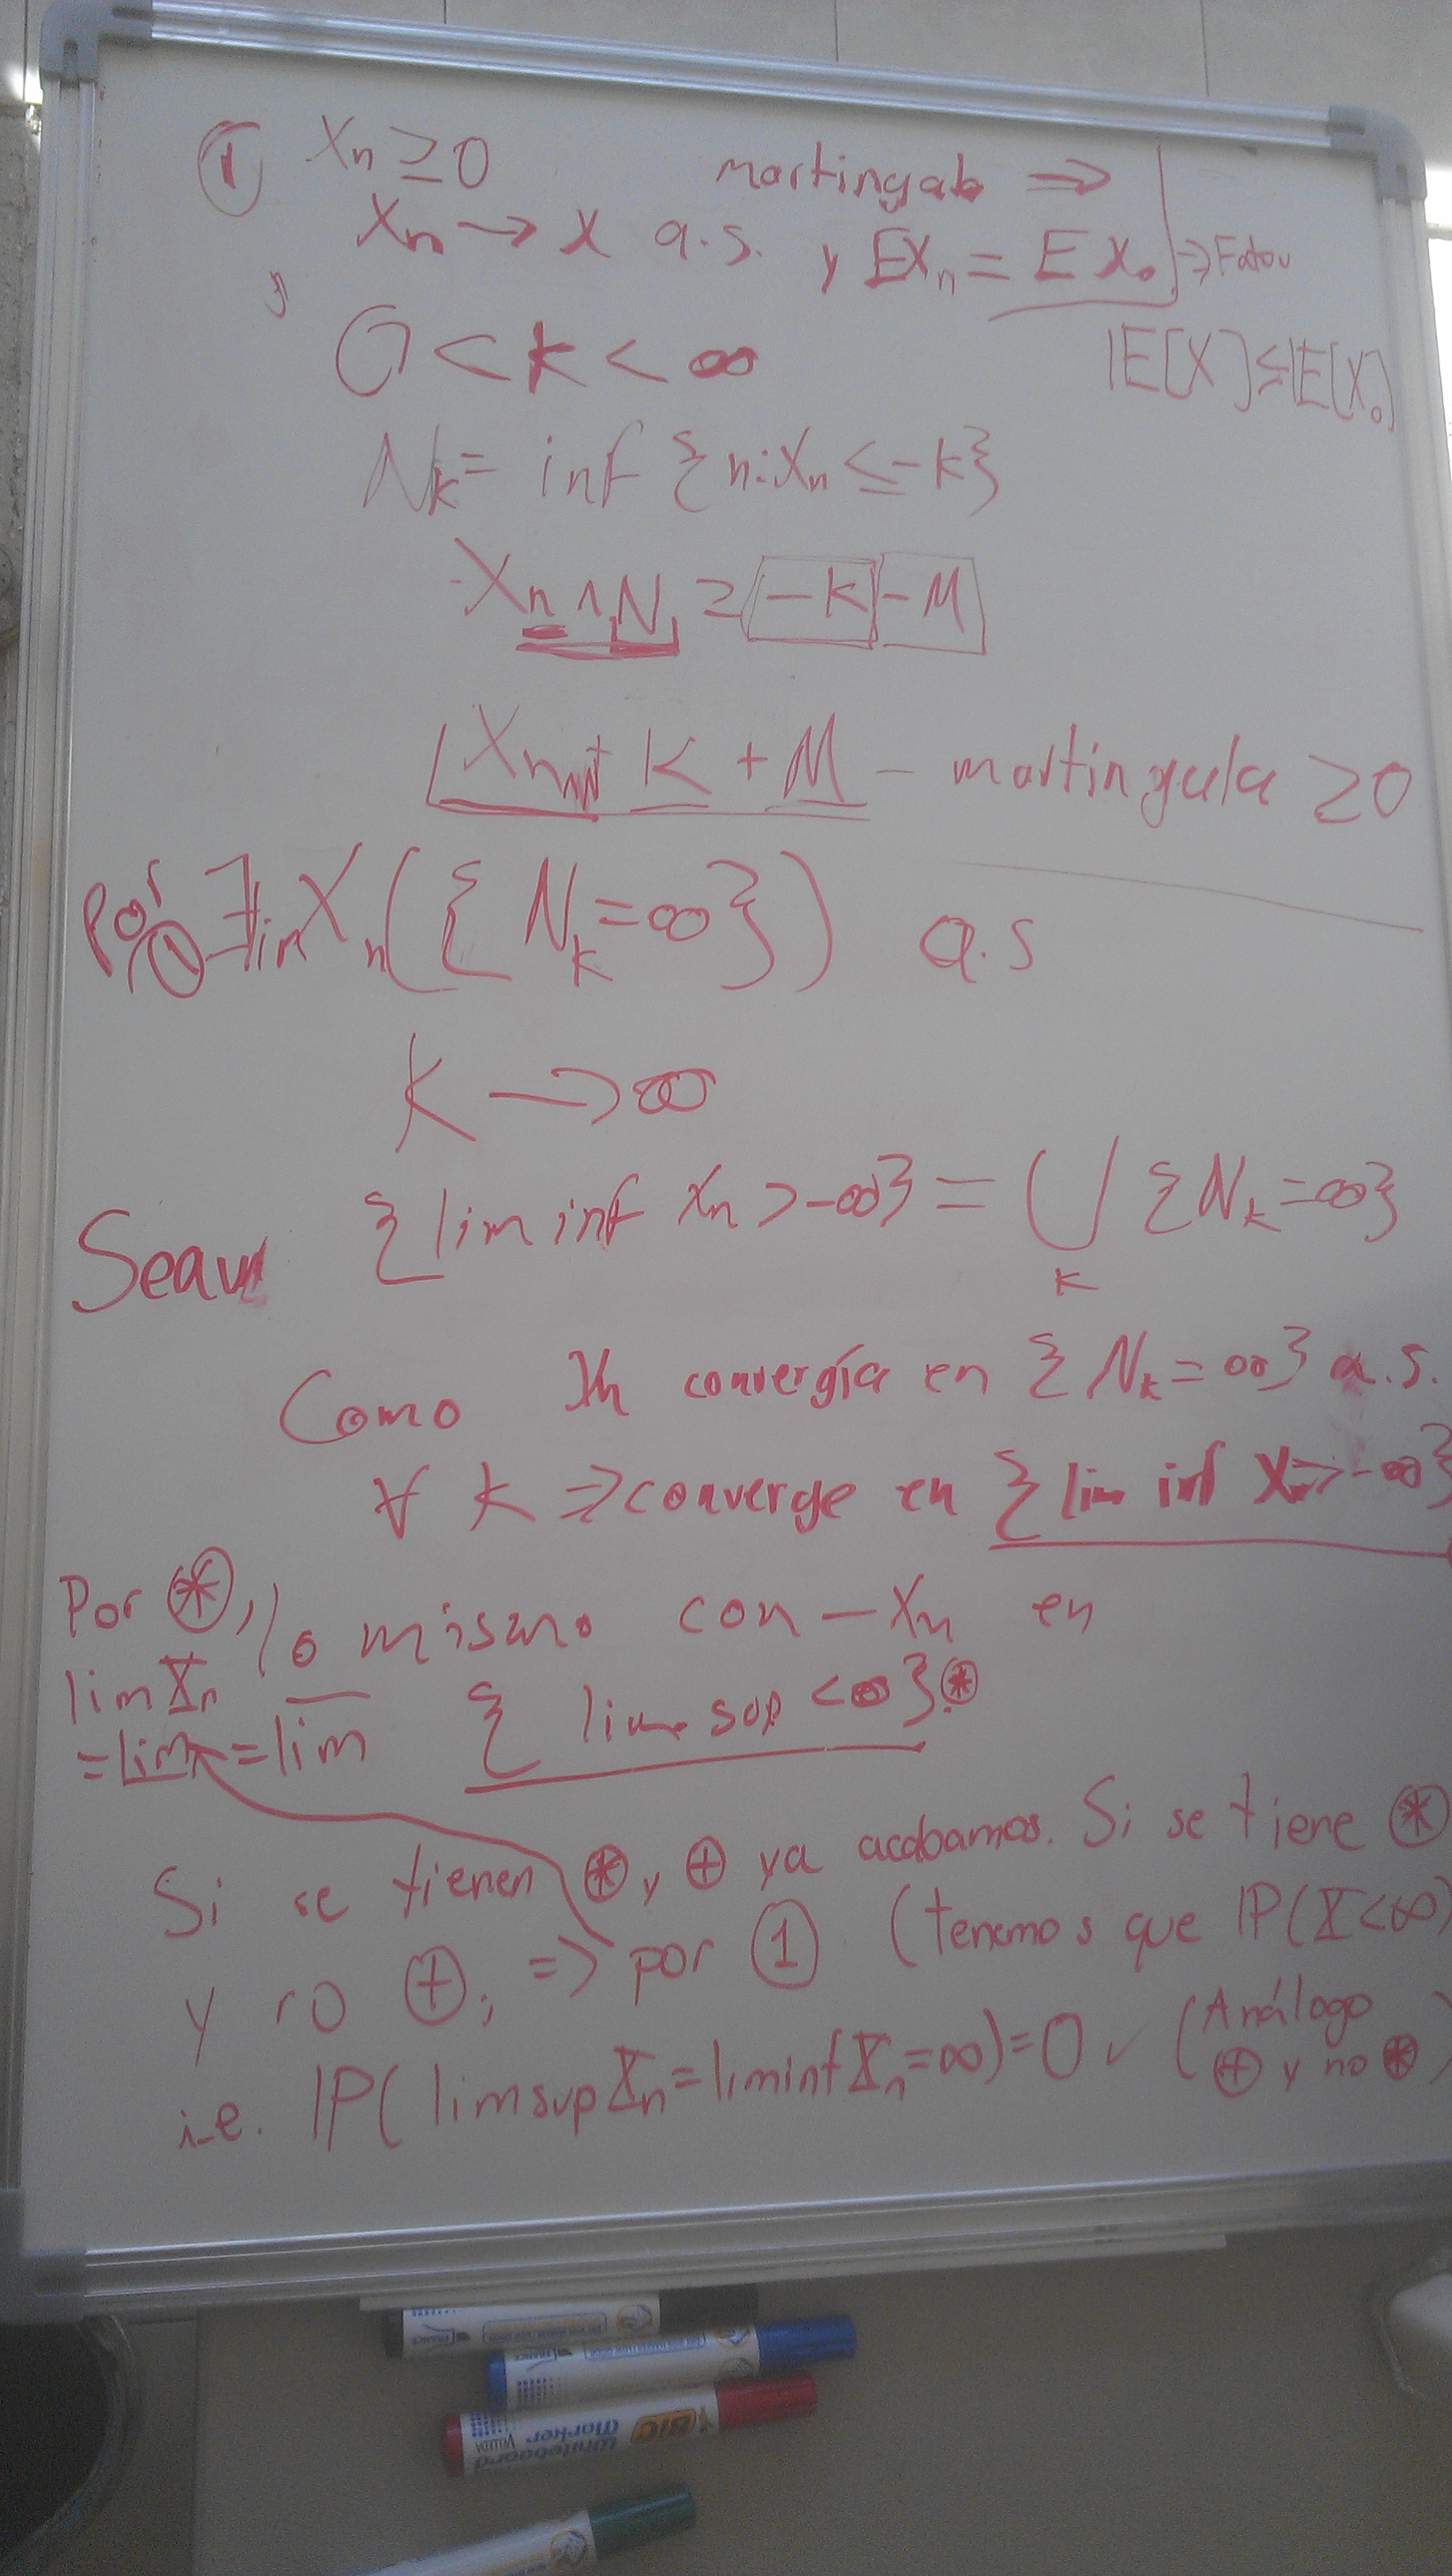 ① Xn ≥ 0 martingala ⇒
Xn → X a.s. y EXn = EX₀ ⇒ Fatou
|E[X] ≤ |E[X₀]
0 < K < ∞
N_K = inf {n: Xn ≤ -K}
X_{n∧N} ≥ -K -M
X_{n∧N} + K + M - martingala ≥ 0
Por ① ∃ lim Xn ({N_K = ∞}) a.s
K → ∞
Sean {lim inf Xn > -∞} = ⋃_K {N_K = ∞}
Como Xn convergía en {N_K = ∞} a.s.
∀ K ⇒ converge en {lim inf Xn > -∞}
Por ⊛, lo mismo con -Xn en
lim Xn {lim sup < ∞} ⊛
= lim = lim
Si se tienen ⊛ y ⊕ ya acabamos. Si se tiene ⊛
y no ⊕, ⇒ por ① (tenemos que IP(X<∞)
i.e. IP(limsup Xn = liminf Xn = ∞) = 0 ✓ (Análogo
⊕ y no ⊛)
BIC
Whiteboard
Marker
VELLEDA
FRANCE